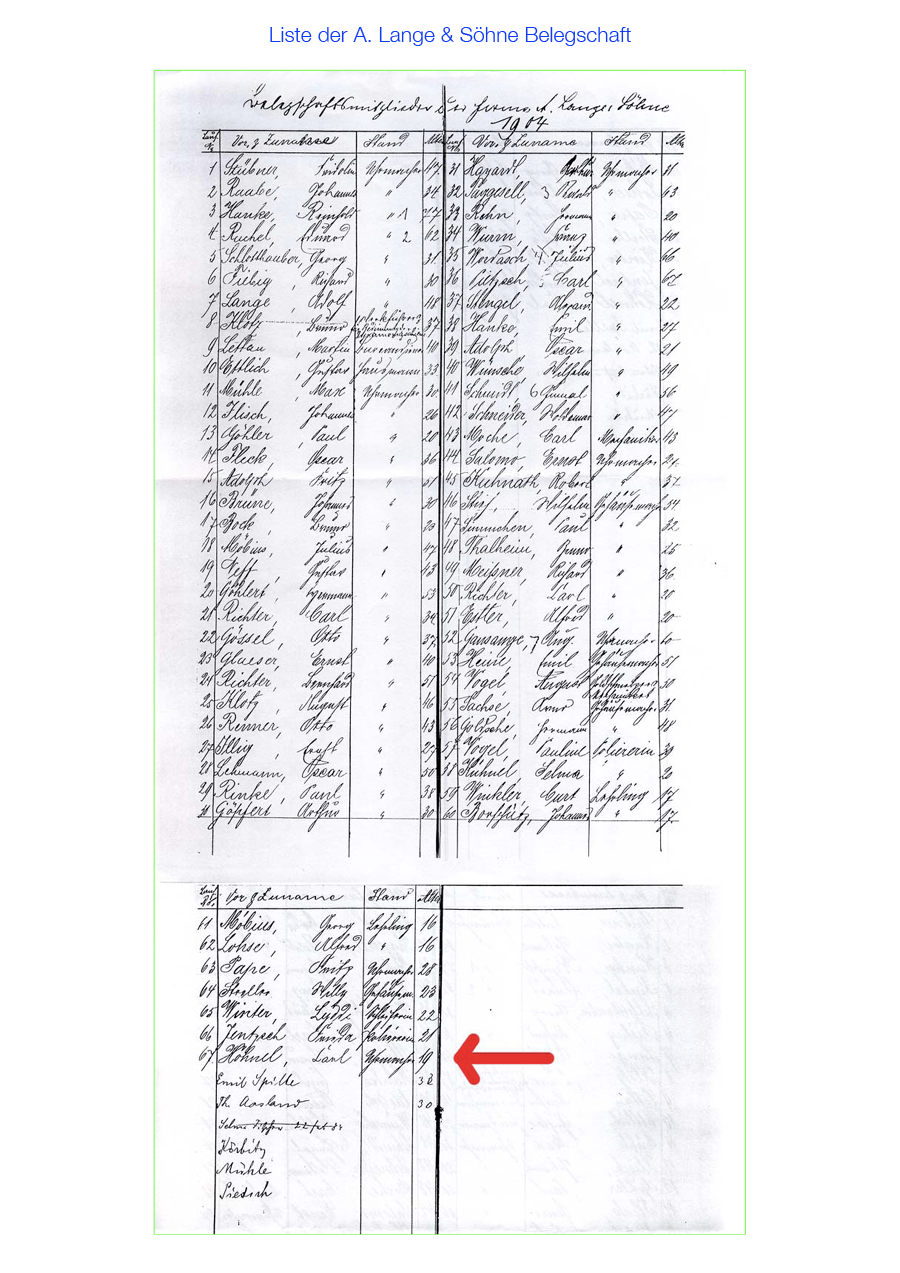 Liste der A. Lange & Söhne Belegschaft
Belegschaftsmitglieder der Firma A. Lange & Söhne
1904
Lauf. No. Vor. & Zuname Stand Alter
1 Stübner, Fridolin Uhrmacher 47
2 Raabe, Johannes " 34
3 Hanke, Reinhold " 1 77
4 Ruchel, " 2 62
5 Schlotthauber, Georg " 31
6 Fiebig, Richard " 30
7 Lange, Adolf " 48
8 Klotz, Bruno 37
9 Lettau, Martin 40
10 Ettlich, Gustav Hausmann 33
11 Mühle, Max Uhrmacher 30
12 Hisch, Johannes " 26
13 Göhler, Paul " 20
14 Fleck, Oscar " 36
15 Adolph Fritz " 51
16 Brüne, Johannes " 30
17 Bock, Bruno " 25
18 Möbius, Julius " 47
19 Neff, Gustav " 43
20 Göhlert, Hermann " 53
21 Richter, Carl " 34
22 Gössel, Otto " 37
23 Glaeser, Ernst " 40
24 Richter, Bernhard " 51
25 Klotz, August " 46
26 Renner, Otto " 43
27 Illig, Ernst " 27
28 Lehmann, Oscar " 50
29 Rinke, Paul " 38
30 Göpfert Arthur " 30
Lauf. No. Vor. & Zuname Stand Alter
31 Arthur Uhrmacher 31
32 3 " 63
33 Kohn, Hermann " 20
34 Wurm, Franz " 40
35 4 Julius " 66
36 5 Carl "
37 Stengel, " 22
38 Hanke, Emil " 27
39 Adolph Oscar " 21
40 Wünsche, Wilhelm " 49
41 Schmidt, 6 " 56
42 Schneider, Woldemar " 47
43 Moche, Carl Mechaniker 43
44 Salomo, Ernst Uhrmacher 21
45 Kuhnath, Robert " 37
46 Wilhelm Gehäusemacher 54
47 Timmchen, Paul " 32
48 Thalheim, " 25
49 Meißner, Richard " 36
50 Richter, Carl " 20
51 Estler, Alfred " 20
52 Gansauge, 7 Aug. Uhrmacher 60
53 Heine, Emil Gehäusemacher 51
54 Vogel, August 50
55 Sachse, Arno Gehäusemacher 31
56 Goltzsche, Hermann " 48
57 Vogel, Pauline Poliererin 39
58 Kühnel, Selma " 20
59 Winkler, Curt Lehrling 17
60 Borschütz, Johannes " 17
Lauf. No. Vor & Zuname Stand Alter
61 Möbius, Georg Lehrling 16
62 Lohse, Alfred " 16
63 Pape, Fritz Uhrmacher 28
64 Stroller Willy Gehäusem. 23
65 Winter, 22
66 Jentzsch Frieda Poliererin 21
67 Höhnel, Carl Uhrmacher 19
Emil Spitte 32
Th. Aasland 30
Selma Fischer
Körbitz
Mühle
Pietsch